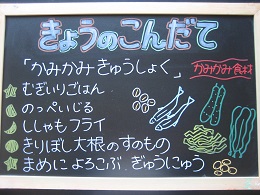 きょうのこんだて
「かみかみきゅうしょく」
かみかみ食材
むぎいりごはん
のっぺいじる
ししゃもフライ
きりぼし大根のすのもの
まめによろこぶ ぎゅうにゅう